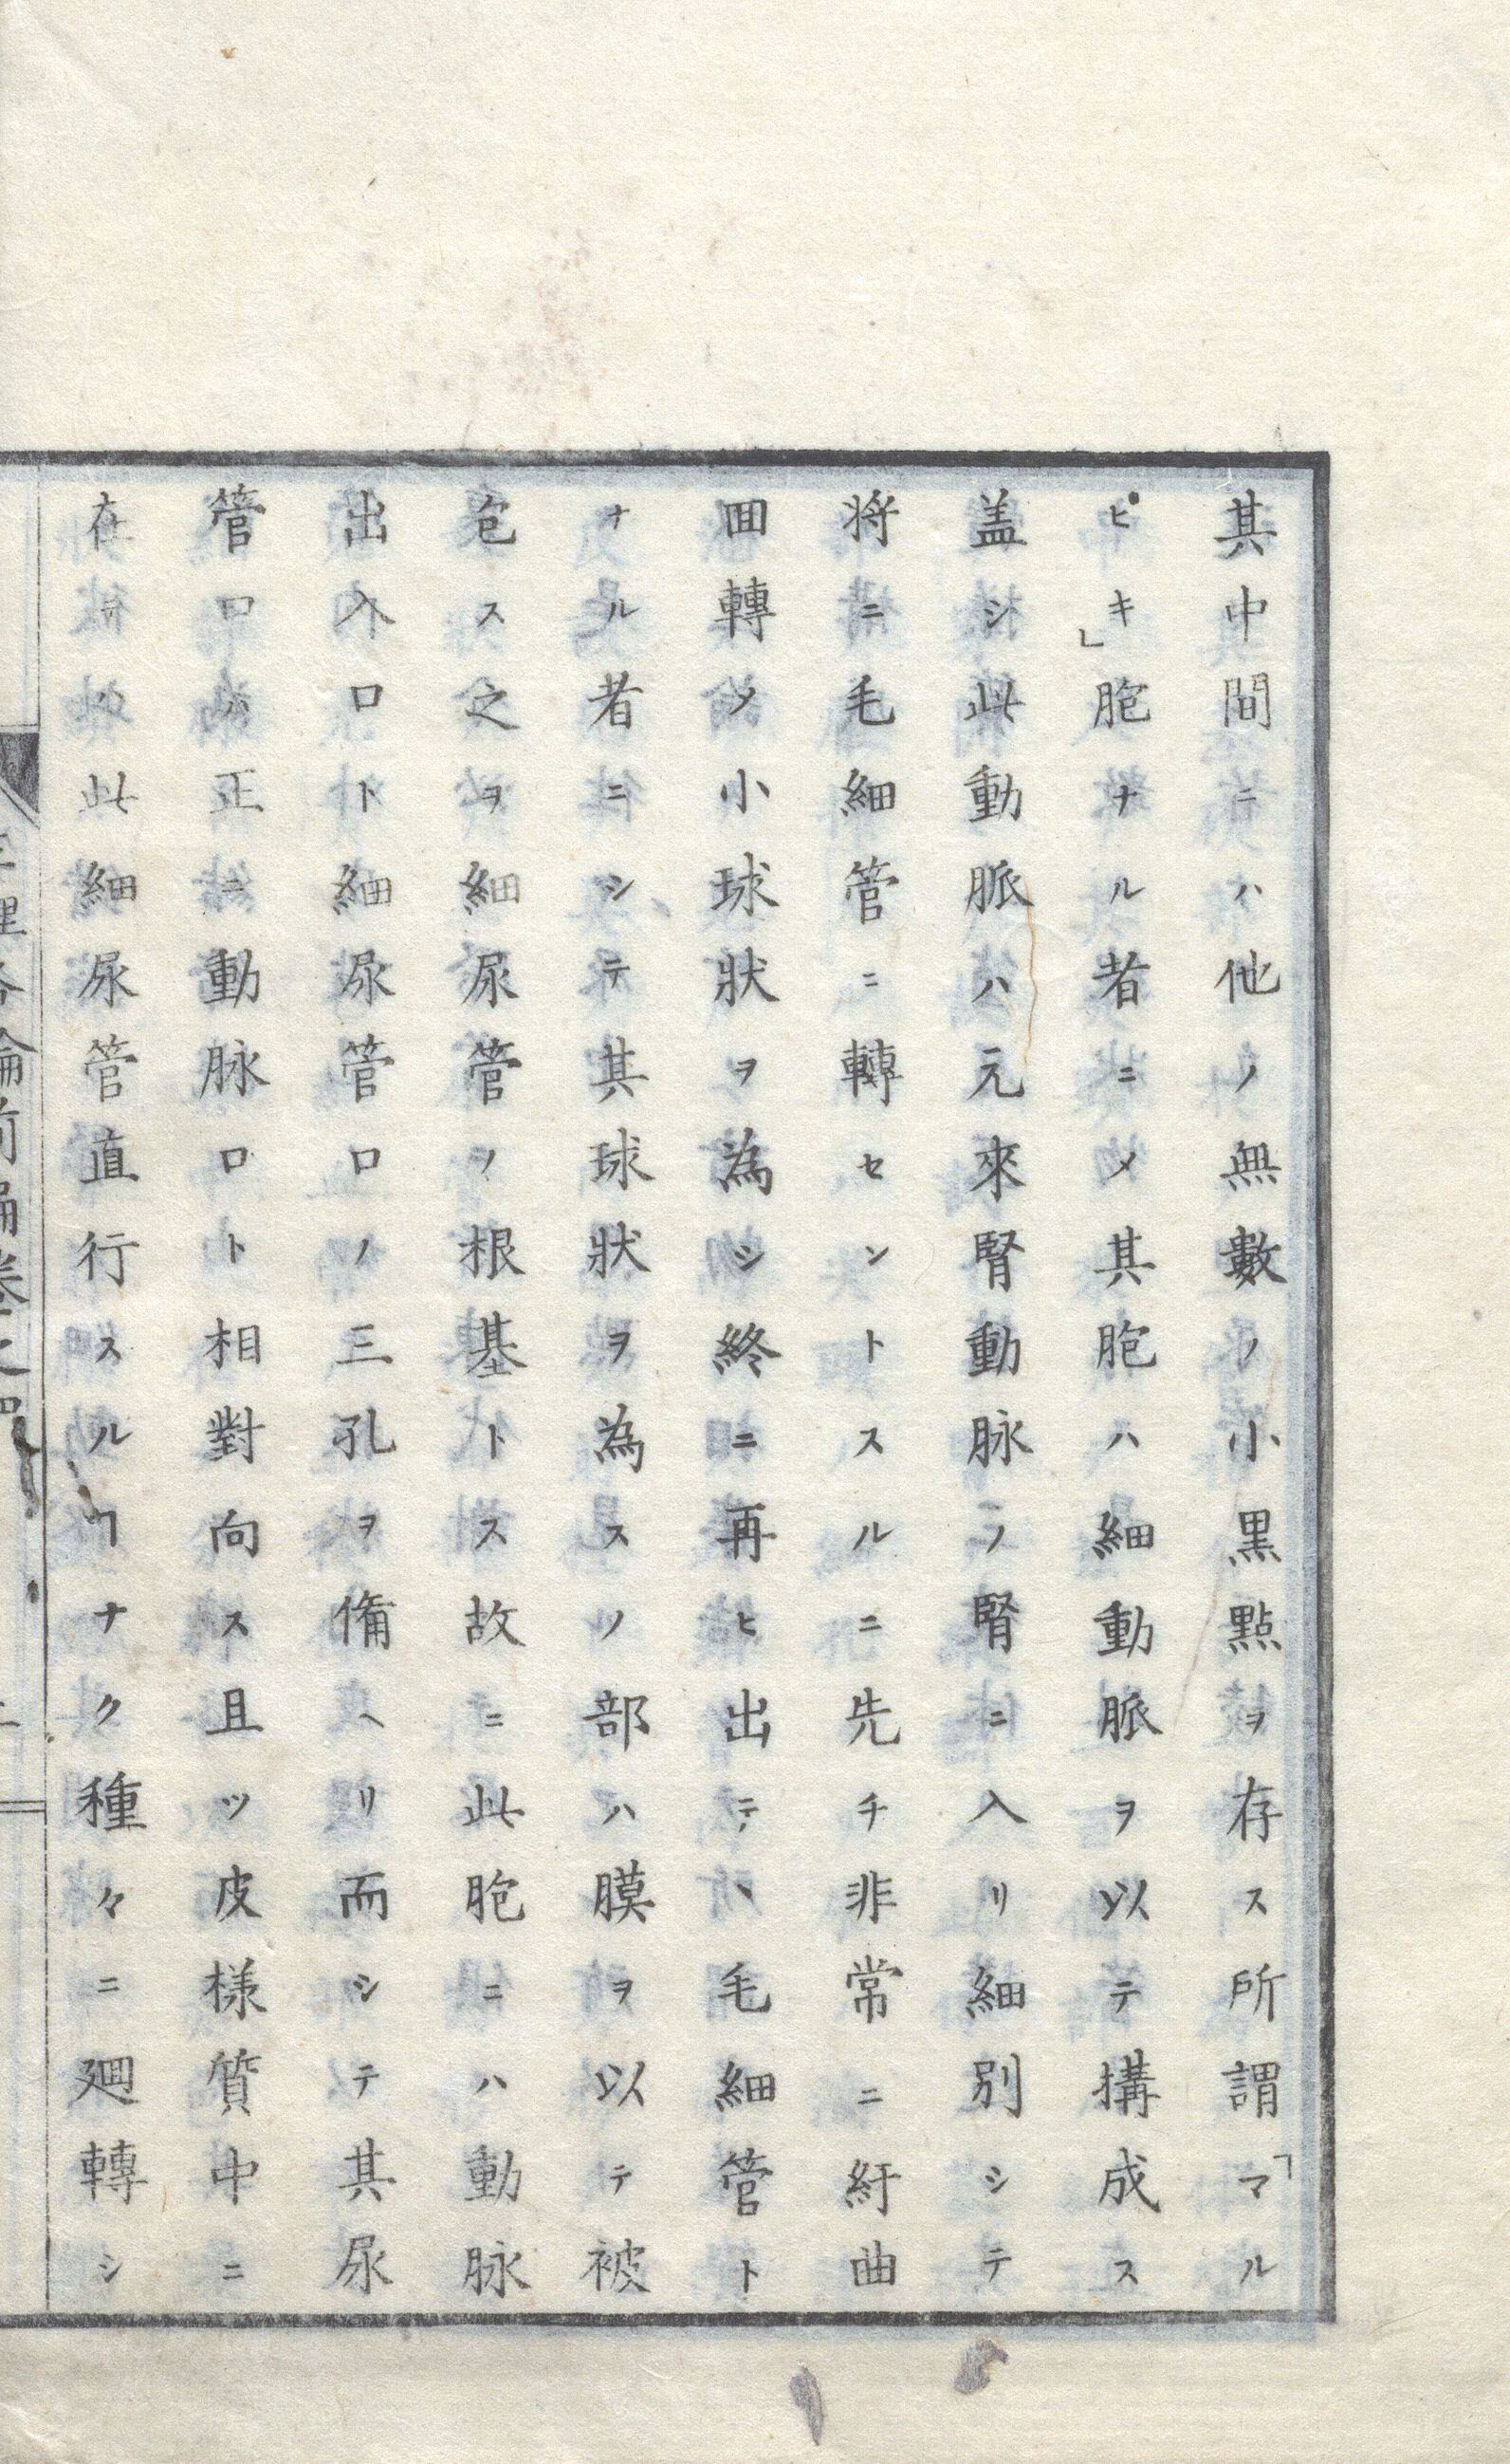 其中間ニハ他ノ無數ノ小黒點ヲ存ス所謂「マル
ピキ」胞ナル者ニメ其胞ハ細動脈ヲ以テ搆成ス
盖シ此動脈ハ元來腎動脉ノ腎ニ入リ細別シテ
将ニ毛細管ニ轉セントスルニ先チ非常ニ紆曲
回轉メ小球狀ヲ為シ終ニ再ヒ出テ、毛細管ト
ナル者ニシテ其球狀ヲ為スノ部ハ膜ヲ以テ被
包ス之ヲ細尿管ノ根基トス故ニ此胞ニハ動脉
出入口ト細尿管口ノ三孔ヲ俻ヘリ而シテ其尿
管口ハ正ニ動脉口ト相對向ス且ツ皮様質中ニ
在テハ此細尿管直行スルヿナク種々ニ廻轉シ